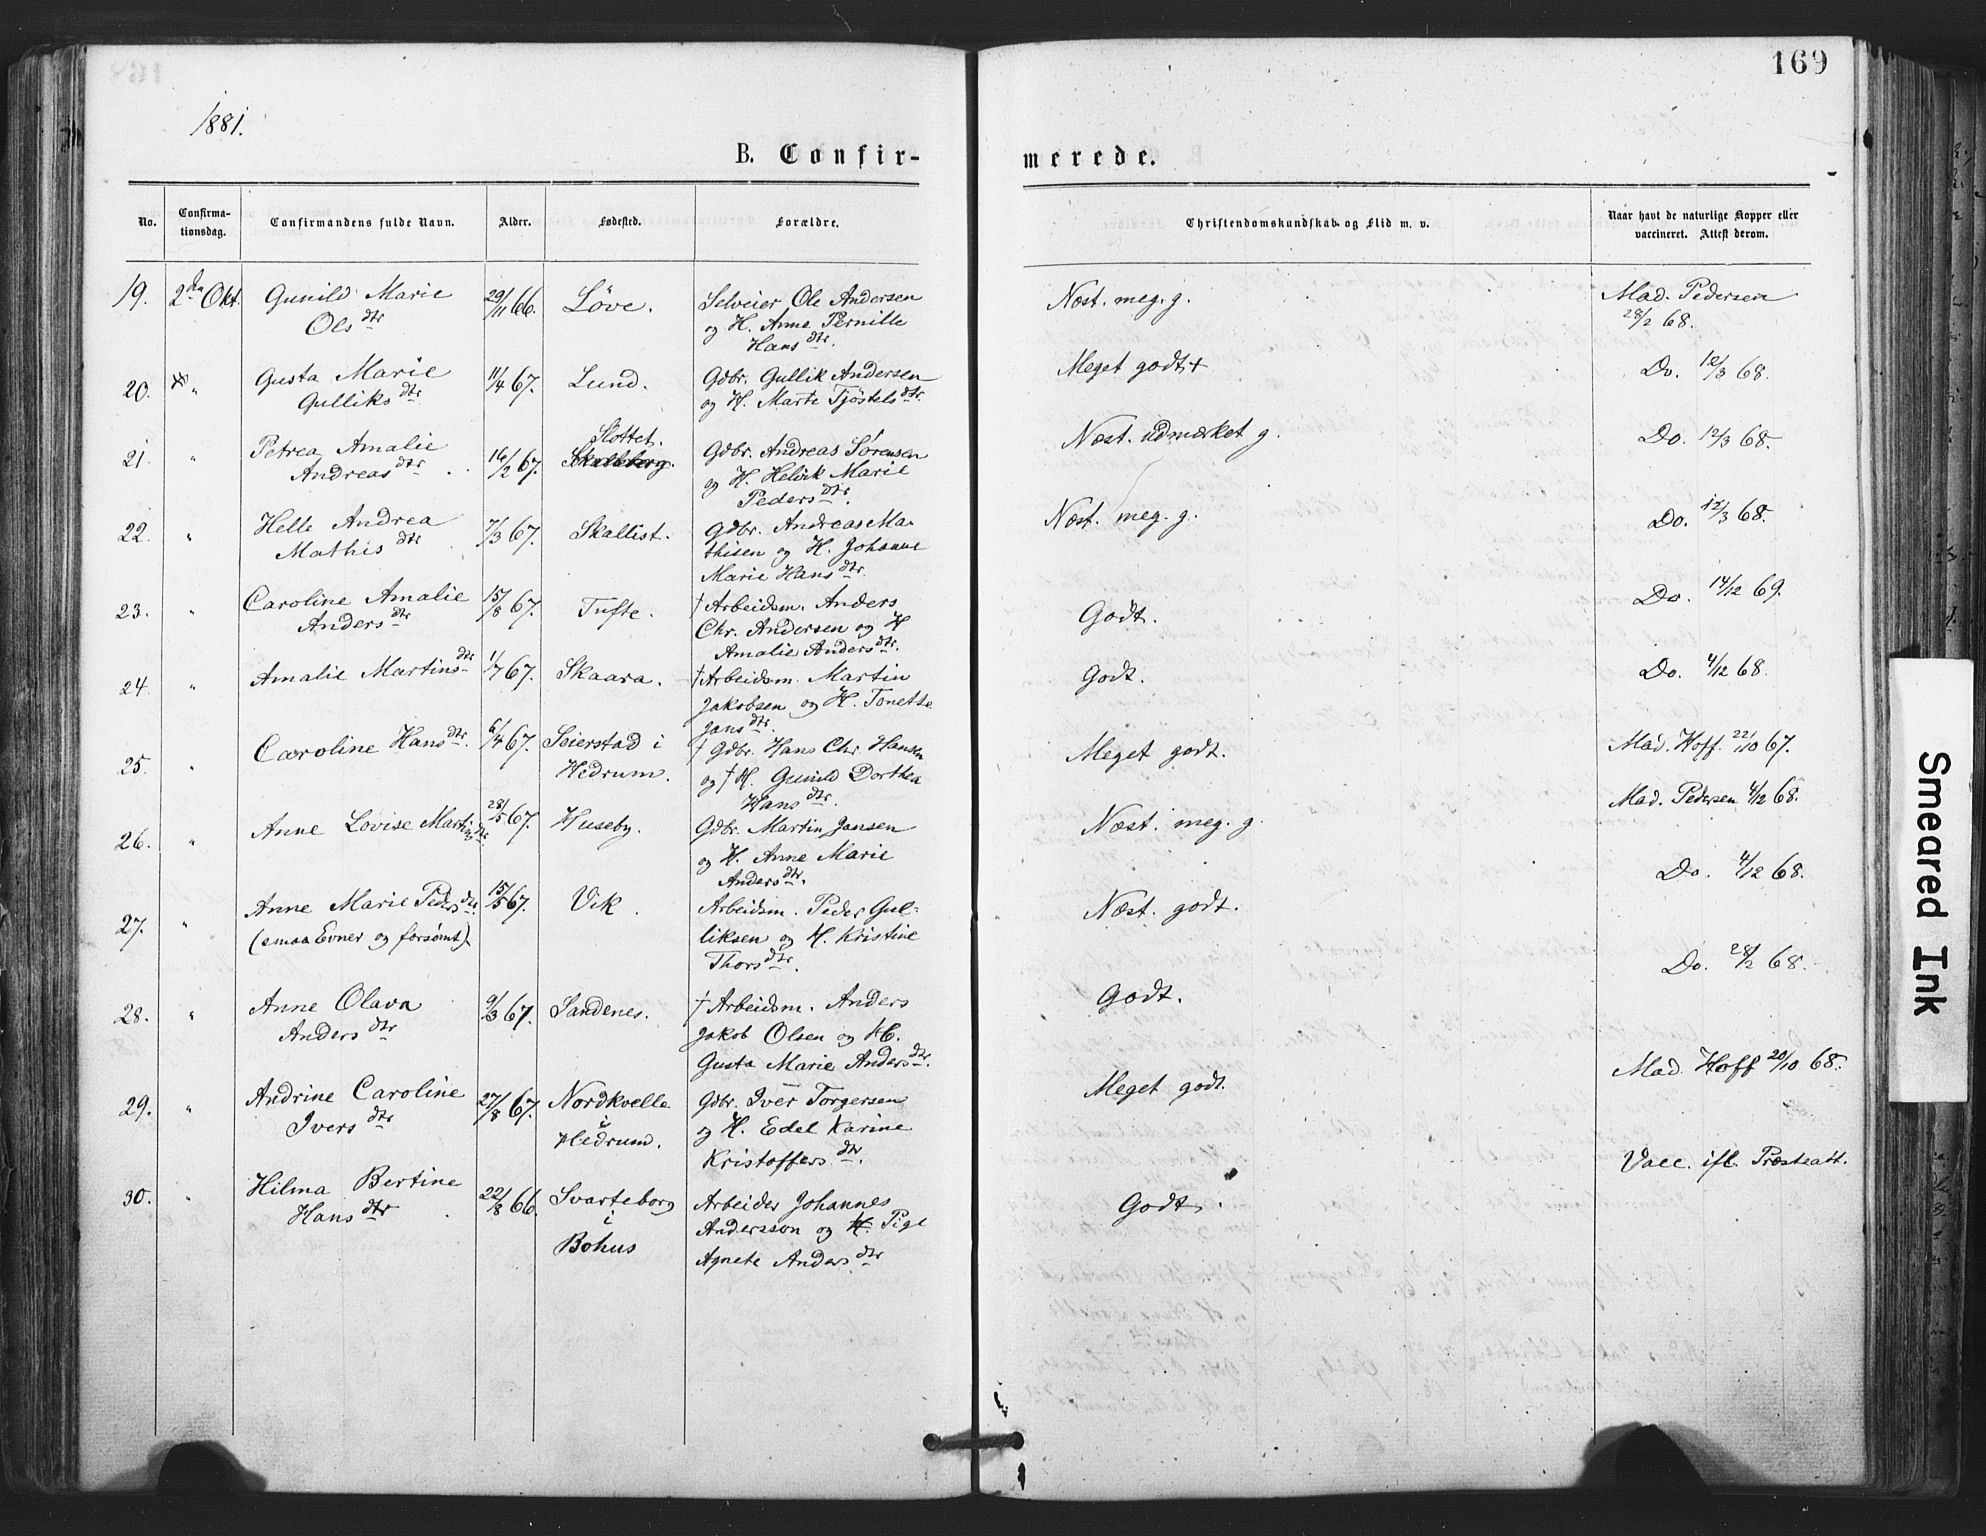 169
1881.
B. Confir-
merede.
No.
Confirma-
tionsdag.
Confirmandens fulde Navn.
Alder.
Fødested.
Forældre.
Christendomskundskab og Flid m. v.
Naar havt de naturlige Kopper eller
vaccineret. Attest derom.
19. 2den Okt. Gunild Marie 29/11 66. Löve. Selveier Ole Andersen Næst. meg. g. Mad. Pedersen
Olsdtr og H. Anne Pernille 28/2 68.
Hansdtr.
20. " Gusta Marie 11/4 67. Lund. Gdbr. Gullik Andersen Meget godt+ Do. 12/3 68.
Gulliksdtr og H. Marte Tjöstelsdtr.
21. " Petrea Amalie 16/2 67. Slottet. Gdbr. Andreas Sörensen Næst. udmærket g. Do. 12/3 68.
Andreasdtr. og H. Helvik Marie
Pedersdtr.
22. " Helle Andrea 7/3 67. Skallist. Gdbr. Andreas Ma- Næst. meg. g. Do. 12/3 68.
Mathisdtr. thisen og H. Johanne
Marie Hansdtr.
23. " Caroline Amalie 15/8 67. Tufte. †Arbeidsm. Anders Godt. Do. 14/12 69.
Andersdtr Chr. Andersen og H
Amalie Andersdtr.
24. " Amalie Martinsdtr 1/7 67. Skaara. †Arbeidsm. Martin Godt. Do. 4/12 68.
Jakobsen og H. Tonette
Jansdtr.
25. " Caroline Hansdtr. 6/4 67. Seierstad i † Gdbr. Hans Chr Hansen Meget godt. Mad. Hoff 22/10 67.
Hedrum. og † H. Gunild Dorthea
Hansdtr.
26. " Anne Lovise Martinsdtr. 28/5 67. Huseby. Gdbr. Martin Jansen Næst. meg. g. Mad. Pedersen 4/12 68.
og H. Anne Marie
Andersdtr.
27. " Anne Marie Pedersdtr. 15/5 67. Vik. Arbeidsm. Peder Gul- Næst. godt. Do. 4/12 68.
(smaa Evner og forsömt). liksen og H. Kristine
Thorsdtr.
28. " Anne Olava 9/3 67. Sandenes. † Arbeidsm. Anders Godt. Do. 28/2 68.
Andersdtr Jakob Olsen og H.
Gusta Marie Andersdtr.
29. " Andrine Caroline 27/8 67. Nordkvelle Gdbr. Iver Torgersen Meget godt. Mad. Hoff 20/10 68.
Iversdtr i og H. Edel Karine
Hedrum. Kristoffersdtr.
30. " Hilma Bertine 22/8 66. Svarteborg Arbeider Johannes Godt. Vacc. ifl. Præsteatt.
Hansdtr. i Andersson og Pige
Bohus Agnete Andersdtr
Smeared Ink